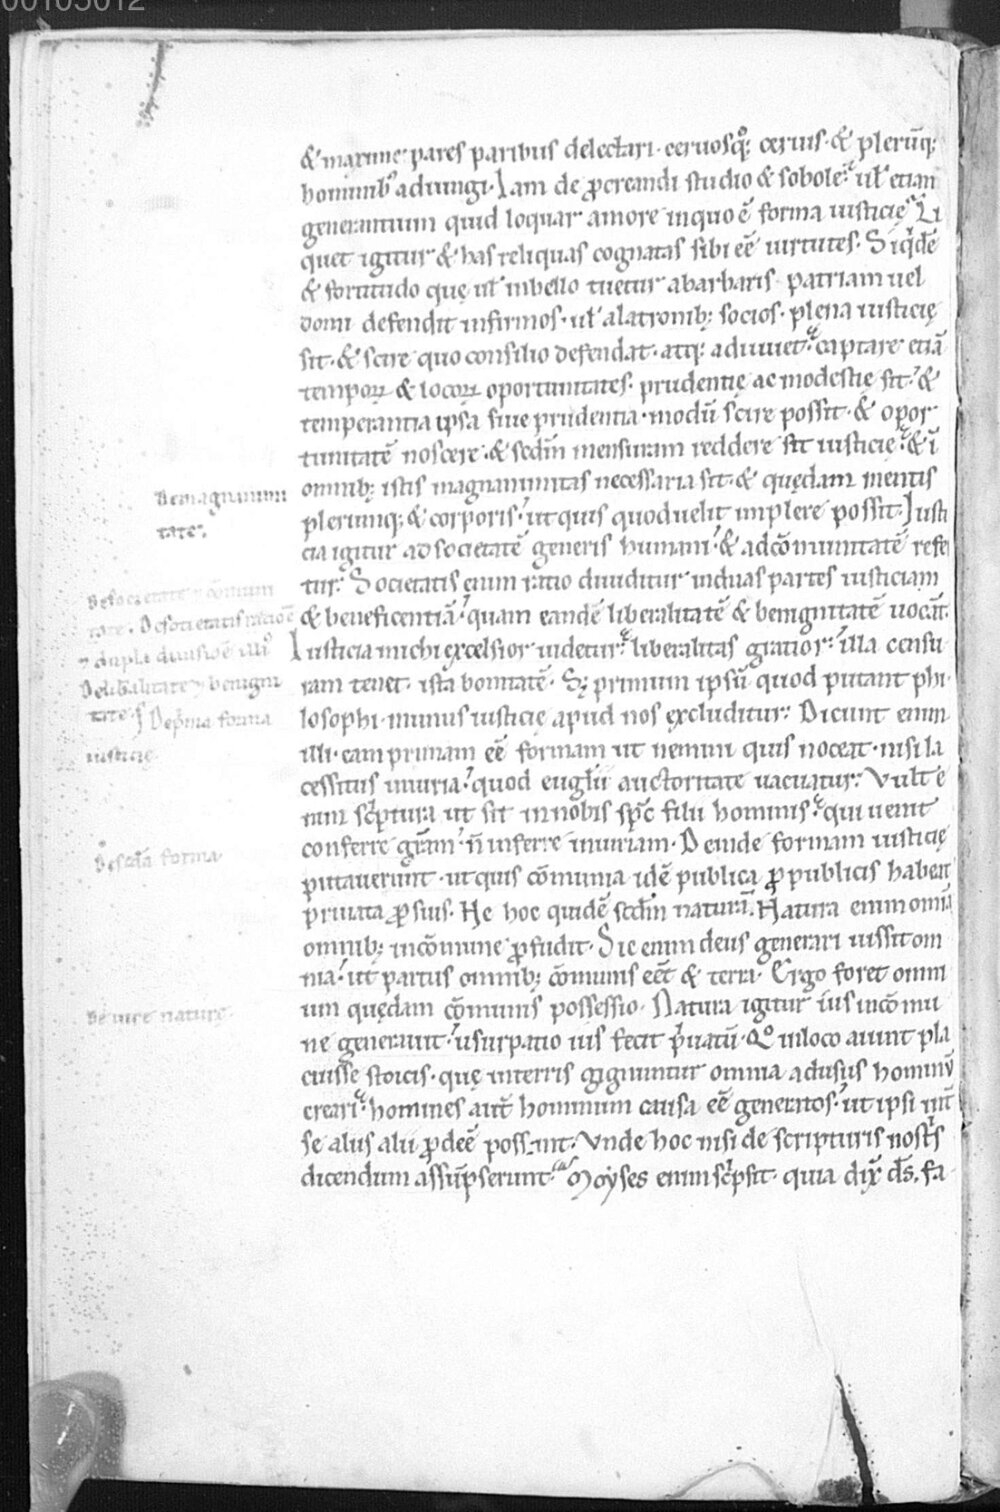 00105012
& maxime pares paribus delectari· ceruosq; ceruis· & plerūq;
hominib; adiungi· Iam de ꝓcreandi studio & sobole· ul' etiam
generantium quid loquar amore inquo ē forma iusticię· Li
quet igitur & has reliquas cognatas sibi eē uirtutes· Siq'dē
& fortitudo quę ul' inbello tuetur abarbaris patriam uel
domi defendit infirmos· ul' alatronib; socios· plena iusticię
sit· & scire quo consilio defendat· atq; adiuuet· captare etiā
tempoꝝ & locoꝝ oportunitates· prudentię ac modestię sit· &
temperantia ipsa siue prudentia· modū scire possit· & opor
tunitatē noscere· & scd̄m mensuram reddere sit iusticię· & ī
omnib; istis magnanimitas necessaria sit· & quędam mentis
plerumq; & corporis· ut quis quod uelit implere possit· Iusti
cia igitur ad societatē generis humani· & adcōmunitatē refe
tur· Societatis enim ratio diuiditur induas partes iusticiam
& beneficentiā· quam eandē liberalitatē & benignitatē uocāt·
Iusticia michi excelsior uidetur· liberalitas gratior· illa censu
ram tenet· ista bonitatē· Sꝫ primum ipsū quod putant phi
losophi· munus iusticię apud nos excluditur· Dicunt enim
illi· eam primam eē formam ut nemini quis noceat· nisi la
cessitus iniuria· quod euglii auctoritate uacuatur· Vult e
nim sc'ptura ut sit in nobis spc filii hominis· qui uenit
conferre gr̄am· n̄ inferre iniuriam· Deinde formam iusticię
putauerunt· ut quis cōmunia idē publica ꝓ publicis habeat
priuata ꝓ suis· Ne hoc quidē scd̄m naturā· Natura enim omīa
omnib; incōmune ꝓfudit· Sic enim deus generari iussit om
nia· ut partus omnib; cōmunis eēt & terra· Ergo foret omni
um quędam cōmunis possessio· Natura igitur ius incōmu
ne generauit· usurpatio ius fecit p'uatū· Qo inloco aiunt pla
cuisse stoicis· quę interris gignuntur omnia adusus hominū
creari· homines aut̄ hominum causa eē generatos· ut ipsi int̄
se aliis alii ꝓdeē possint· Vnde hoc nisi de scripturis nost's
dicendum assūpserunt· Moyses enim sc'psit· quia dix̄ ds̄· fa
De magnanimi
tate·
iusticię
De scd̄a forma
De iure naturę